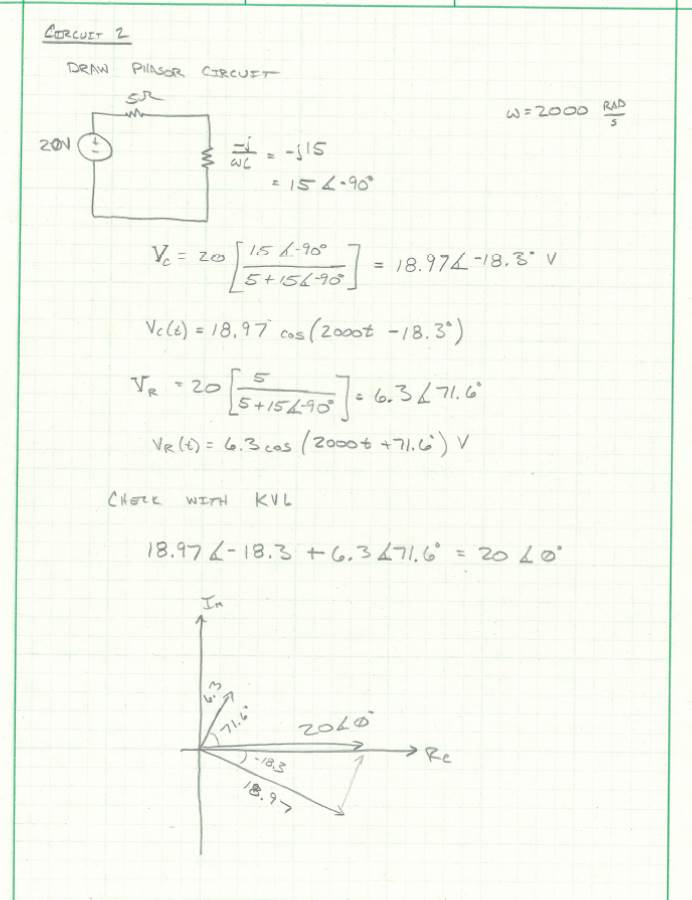 CIRCUIT 2
DRAW PHASOR CIRCUIT
5Ω
ω = 2000 RAD/S
20V
-j/ωC = -j15
= 15∠-90°
V_C = 20 [15∠-90° / 5+15∠-90°] = 18.97∠-18.3° V
V_C(t) = 18.97 cos(2000t - 18.3°)
V_R = 20 [5 / 5+15∠-90°] = 6.3∠71.6°
V_R(t) = 6.3 cos(2000t + 71.6°) V
CHECK WITH KVL
18.97∠-18.3 + 6.3∠71.6° = 20∠0°
Im
6.3
71.6°
20∠0°
Re
-18.3
18.97